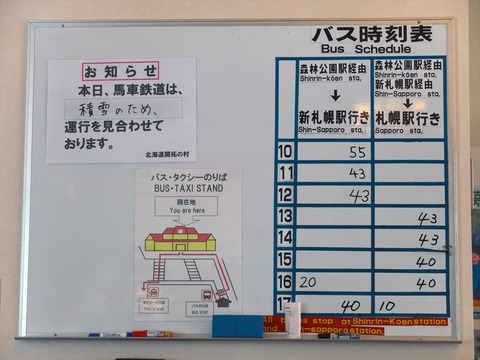 お知らせ
本日、馬車鉄道は、
積雪のため、
運行を見合わせて
おります。
北海道開拓の村
バス・タクシーのりば
BUS・TAXI STAND
現在地
You are here
タクシーのりば
TAXI STAND
バスのりば
BUS STOP
バス時刻表
Bus Schedule
森林公園駅経由
Shinrin-kōen sta.
↓
新札幌駅行き
Shin-Sapporo sta.
森林公園駅経由
Shinrin-kōen sta.
新札幌駅経由
Shin-Sapporo sta.
↓
札幌駅行き
Sapporo sta.
10 55
11 43
12 43
13 43
14 43
15 40
16 20 40
17 40 10
stop at Shinrin-Koen station
-sapporo station.